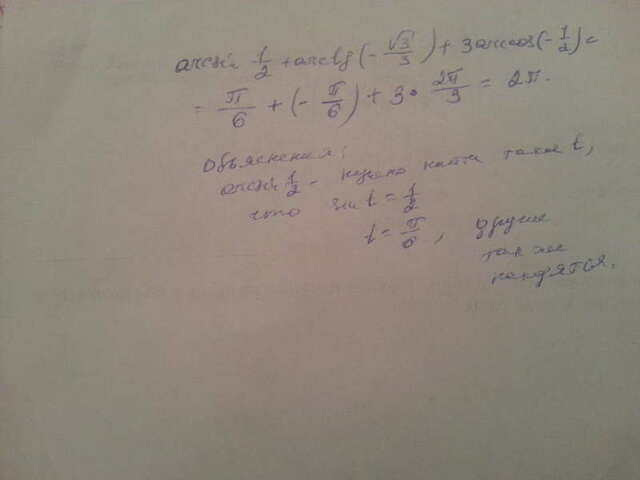 arcsin 1/2 + arctg (- √3/3) + 3 arccos (- 1/2) =
= π/6 + (- π/6) + 3 · 2π/3 = 2π.
Объяснения:
arcsin 1/2 - нужно найти такое t,
что sin t = 1/2
t = π/6, другие
так же
находятся.